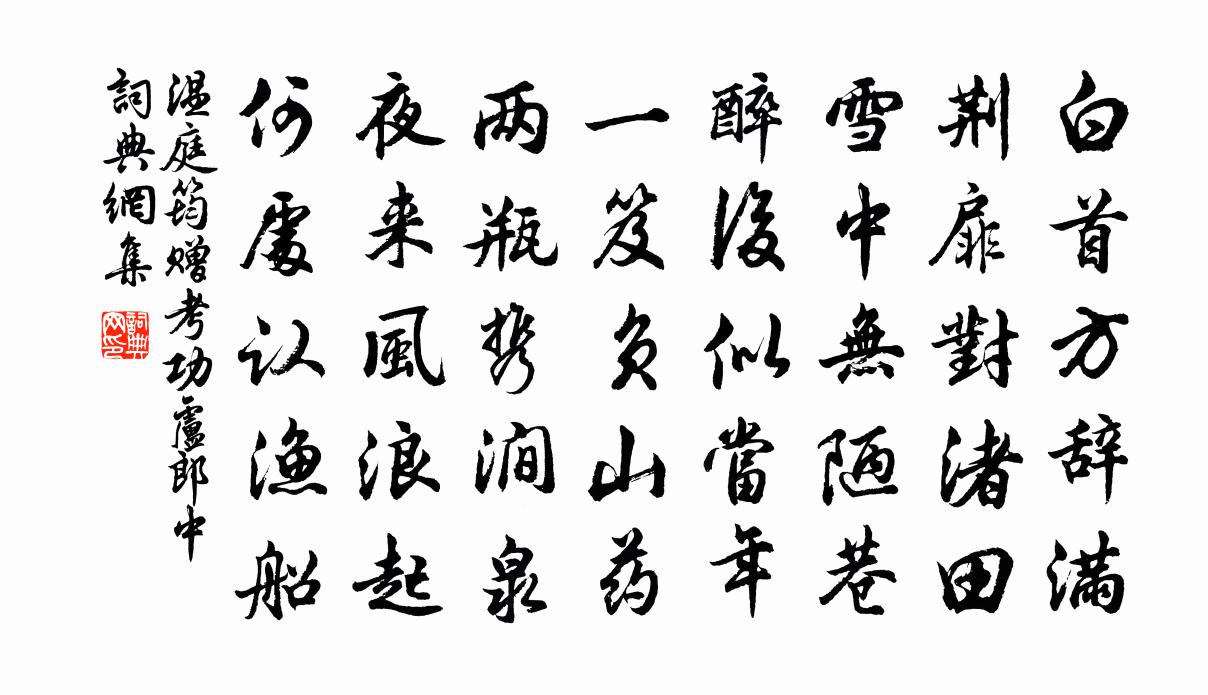 白首方辞满
荆扉對渚田
雪中無陋巷
醉後似當年
一笈负山药
两瓶携涧泉
夜来風浪起
何處认渔船
温庭筠赠考功盧郎中
詞典網集
詞典网印